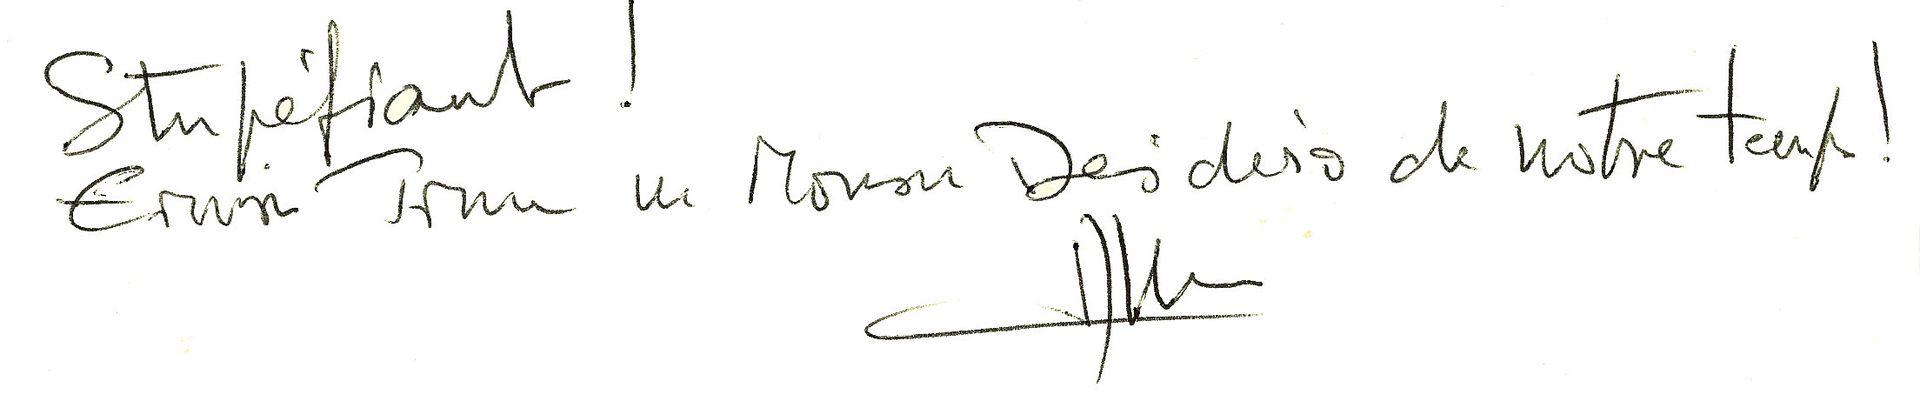 Stupéfiant !
Erwin un Monsu Desiderio de notre temps !